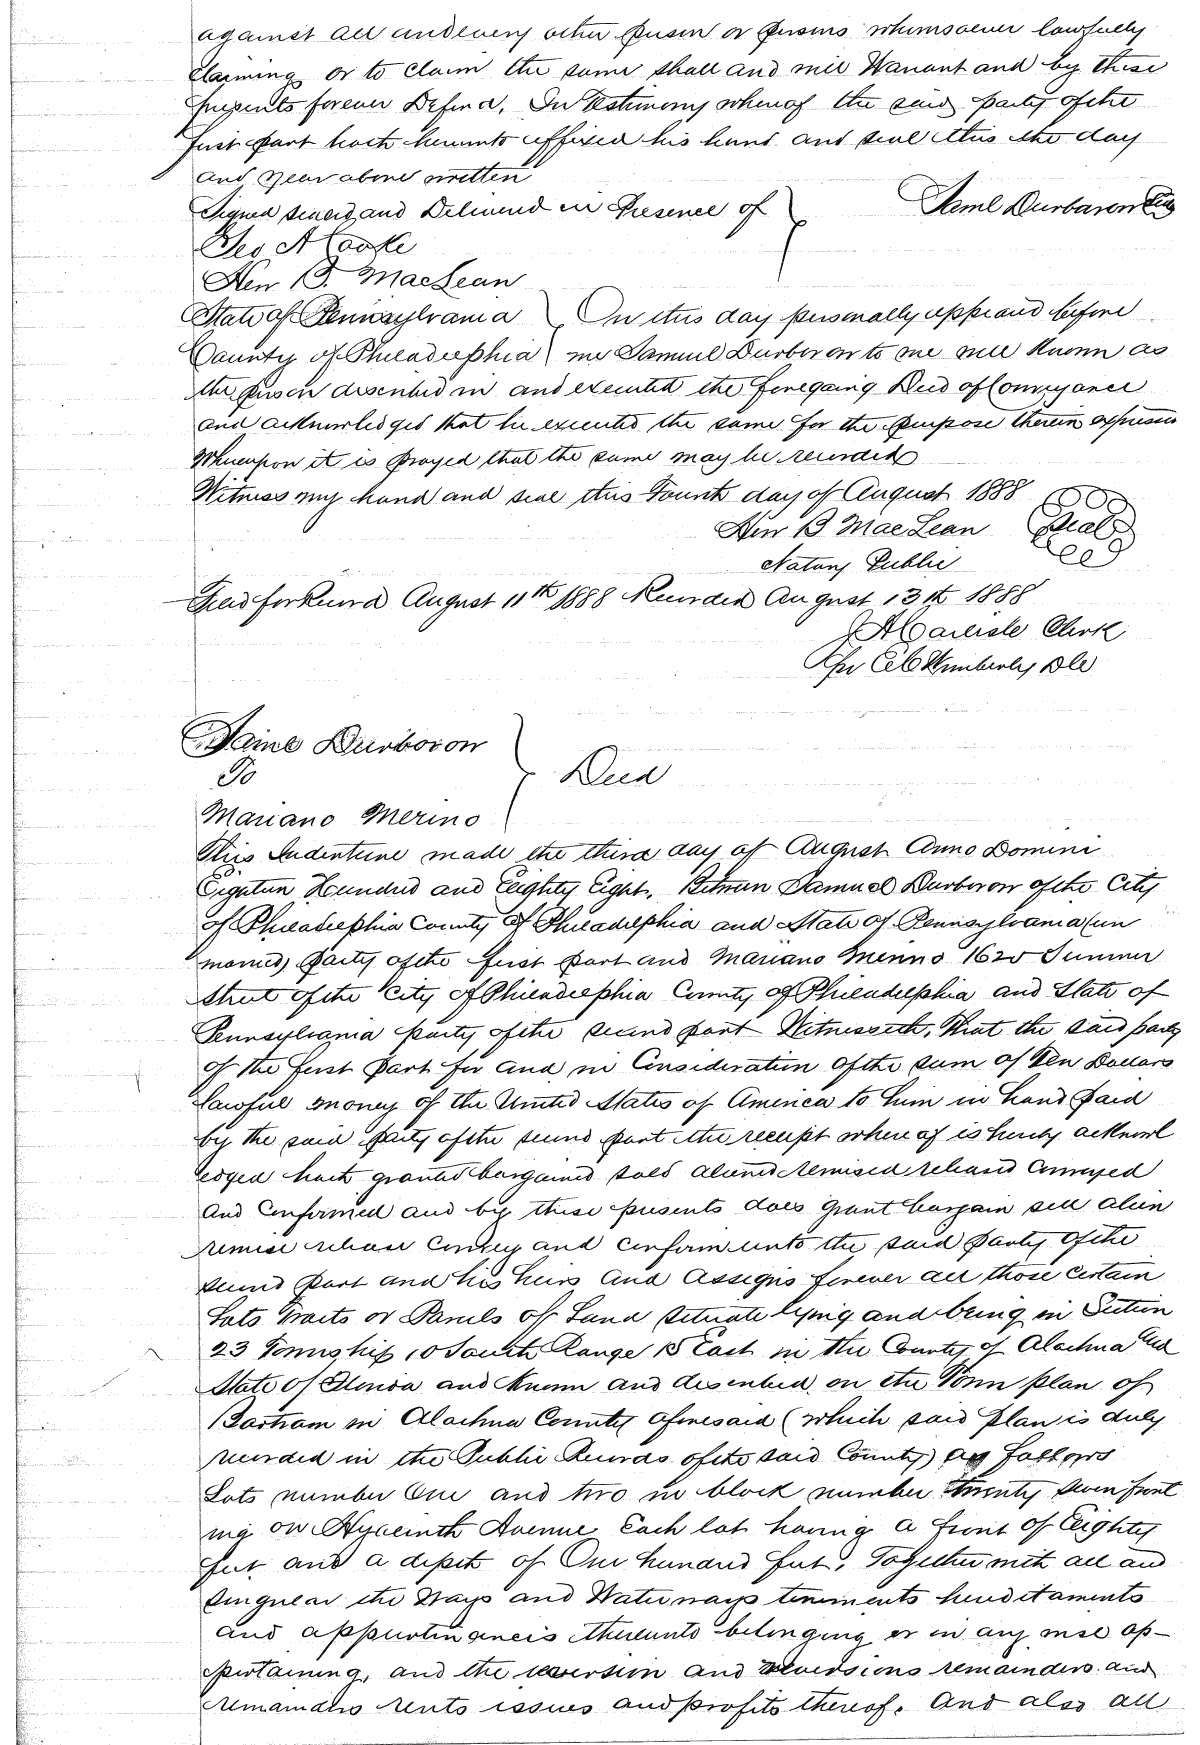 against all and every other person or persons whomsoever lawfully
claiming or to claim the same shall and will Warrant and by these
presents forever Defend. In Testimony whereof the said party of the
first part hath hereunto affixed his hand and seal this the day
and year above written
Signed sealed and Delivered in Presence of
Saml Durboron Seal
Geo A Cooke
Hen B. MacLean
State of Pennsylvania } On this day personally appeared before
County of Philadelphia } me Samuel Durboron to me well known as
the person described in and executed the foregoing Deed of Conveyance
and acknowledged that he executed the same for the purpose therein expressed
Whereupon it is prayed that the same may be recorded
Witness my hand and seal this Fourth day of August 1888
Hen B MacLean Seal
Notary Public
Filed for Record August 11th 1888 Recorded August 13th 1888
JA Carlisle Clerk
Per CC Wimberly DC
Saml Durboron
To } Deed
Mariano Merino
This Indenture made the third day of August Anno Domini
Eighteen Hundred and Eighty Eight. Between Samuel Durboron of the City
of Philadelphia County of Philadelphia and State of Pennsylvania (un
married) party of the first part and Mariano Merino 1620 Summer
street of the City of Philadelphia County of Philadelphia and State of
Pennsylvania party of the second part Witnesseth, That the said party
of the first part for and in Consideration of the sum of Ten Dollars
lawful money of the United States of America to him in hand paid
by the said party of the second part the receipt whereof is hereby acknowl
edged hath granted bargained sold aliened remised released conveyed
and Confirmed and by these presents does grant bargain sell alien
remise release convey and confirm unto the said party of the
second part and his heirs and assigns forever all those certain
Lots Tracts or Parcels of Land situate lying and being in Section
23 Township 10 South Range 18 East in the County of Alachua and
State of Florida and known and described on the Town plan of
Bartram in Alachua County aforesaid (which said plan is duly
recorded in the Public Records of the said County) as follows
Lots number One and two in block number twenty seven front
ing on Hyacinth Avenue Each lot having a front of Eighty
feet and a depth of One hundred feet. Together with all and
singular the Ways and Waterways tenements hereditaments
and appurtenances thereunto belonging or in any wise ap-
pertaining, and the reversion and reversions remainders and
remainders rents issues and profits thereof. And also all